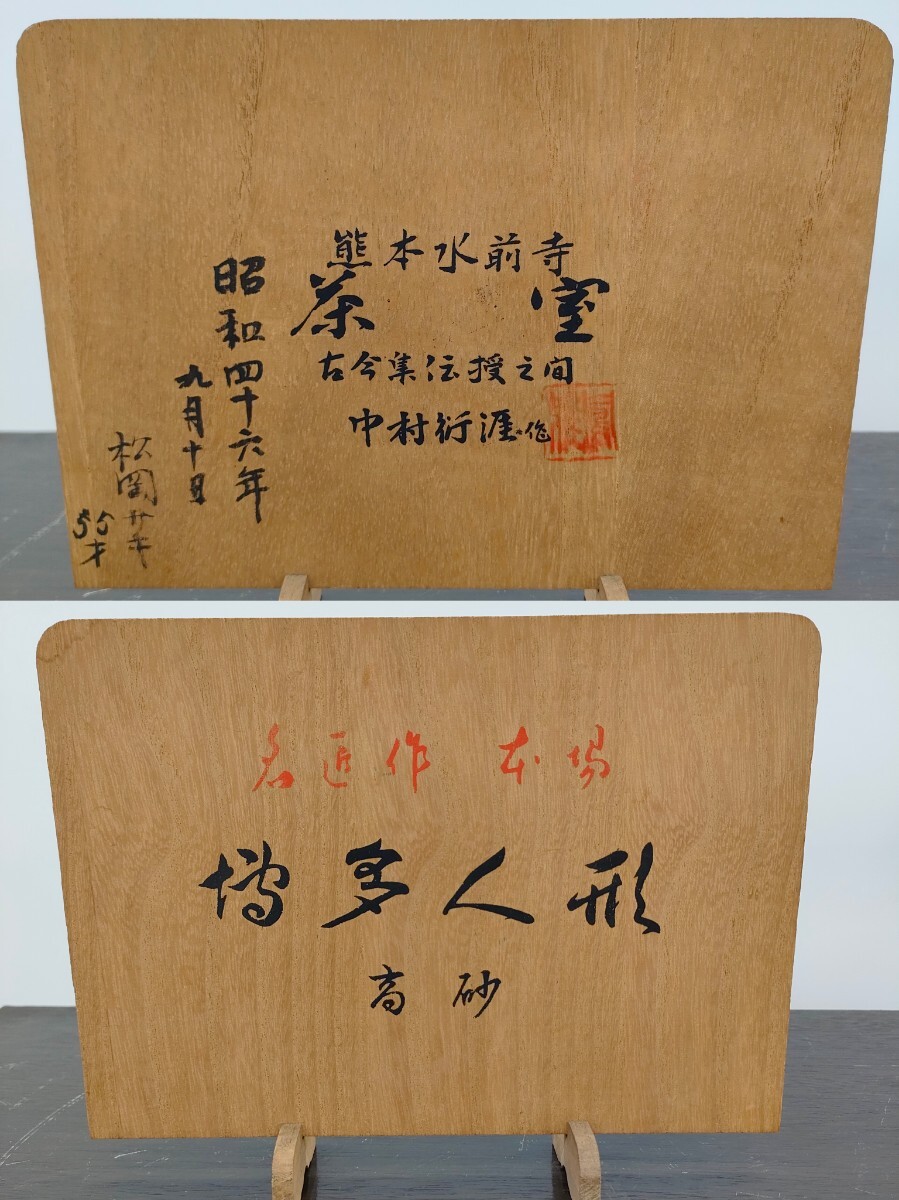 熊本水前寺
茶室
古今集伝授之间
中村衍涯作
昭和四十六年
九月十日
松岡
55才
名匠作 本場
博多人形
高砂